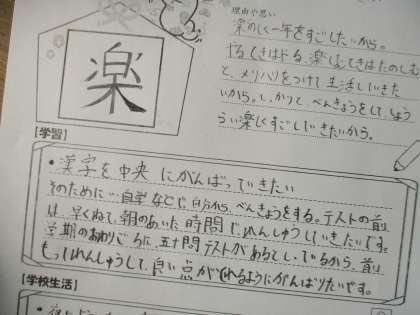 楽
理由や思い
楽しく一年をすごしたいから。
やるときはやる、楽しむときはたのしむ
と、メリハリをつけて生活していきた
いから。しっかりとべんきょうをして、しょう
らい楽しくすごしていきたいから。
[学習]
・漢字を中央にがんばっていきたい
そのために…自学などで、自分から、べんきょうをする。テストの前
は、早くねて、朝のあいた時間で、れんしゅうしていきたいです。
学期のおわりごろに、五十問テストがあるとしているから、前に
もってれんしゅうして、良い点がとれるようにがんばりたいです。
[学校生活]